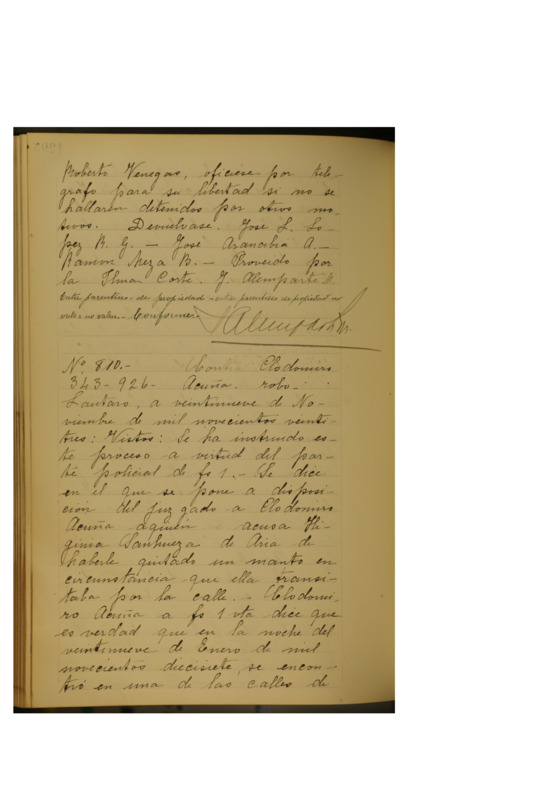 Roberto Venegas, oficiese por telé-
grafo para su libertad si no se
hallaren detenidos por otros mo-
tivos. Devuélvase. José L. Lo-
pez R. G. — José Arancibia A. —
Ramon Meza B. — Proveido por
la Iltma Corte. J. Alemparte R.
Entre parentesis - de propiedad - entre parentesis de propiedad no
vale no valen. - Conforme. -
Nº 810.- Contra Clodomiro
343-926- Acuña. robo.
Lautaro, a veintinueve de No-
viembre de mil novecientos veinti-
tres: Vistos: Se ha instruido es-
te proceso a virtud del par-
te policial de fs 1. - Se dice
en el que se pone a disposi-
cion del juzgado a Clodomiro
Acuña aquien acusa Hi-
ginia Sanhueza de Aria de
haberle quitado un manto en
circunstancia que ella transi-
taba por la calle. - Clodomi-
ro Acuña a fs 1 vta dice que
es verdad que en la noche del
veintinueve de Enero de mil
novecientos diecisiete, se encon-
tró en una de las calles de